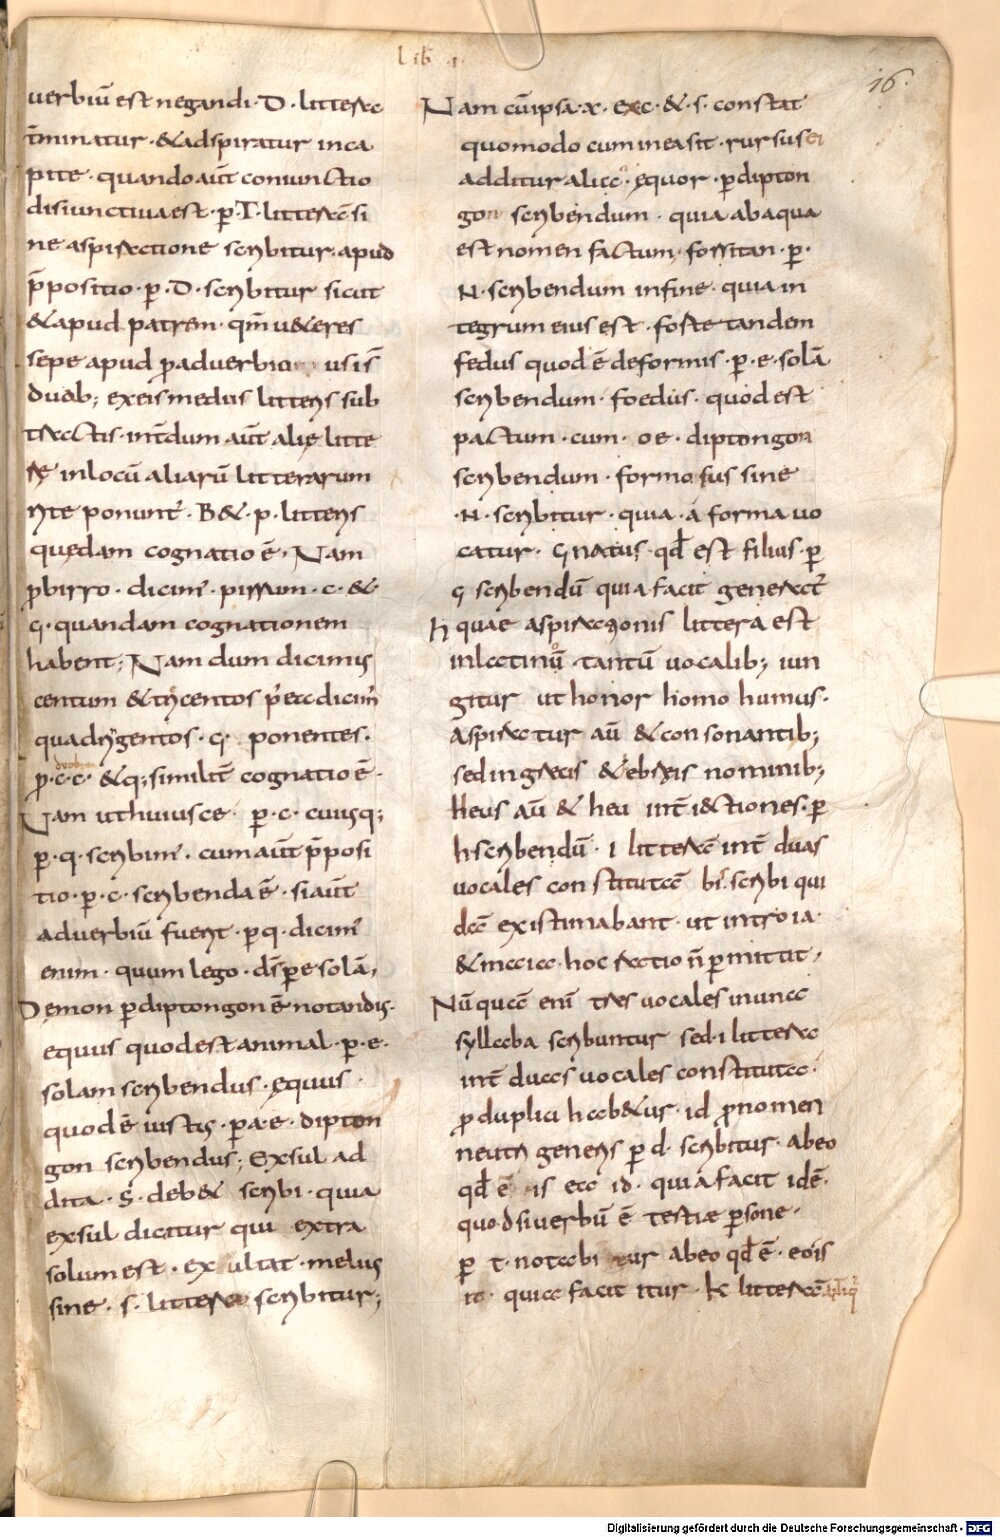 Lib̄ .I.
16.
uerbiū est negandi. D. littera
t̄minatur. & adspiratur inca
pite. quando aut̄ coniunctio
disiunctiua est. ꝑ. T. litterā si
ne aspiratione scribitur. apud
p̄positio. ꝑ. D. scribitur sicut
& apud patrem. qm̄ u&eres
sepe apud ꝓ aduerbio usi s̄
duab; ex eis mediis litteris sub
tractis. int̄dum aut̄ alię litte
rę in locū aliarū litterarum
rite ponunt̄. B & . p. litteris
quędam cognatio ē. Nam
ꝓ birro. dicim̄. pirrum. c. &
G. quandam cognationem
habent; Nam dum dicimus
centum & tricentos p̄ ea dicim̄
quadrigentos. G. ponentes.
ꝓ. c. c. & q; similit̄ cognatio ē.
Nam ut huiusce. ꝑ. c. cuiusq;
ꝑ. q. scribim̄. cum aut̄ p̄posi
tio. ꝑ. c. scribenda ē. si aut̄
aduerbiū fuerit. ꝑ q. dicim̄
enim. quum lego. ds̄ ꝑ e solā,
Dęmon ꝑ diptongon ē notandis.
equus quod est animal. ꝑ. e.
solam scribendus. ęquus.
quod ē iustus. ꝑ a. e. dipton
gon scribendus; Exsul ad
dita. S. deb& scribi. quia
exsul dicitur qui extra
solum est. ex ultat. melius
sine. s. littera scribitur;
Nam cū ipsa. x. ex c. & . s. constat
quomodo cum in ea sit. rursus ei
additur alia. ęquor. ꝑ dipton
gon scribendum. quia ab aqua
est nomen factum. fossitan. ꝑ.
N. scribendum in fine. quia in
tegrum eius est. fors te tandem
fedus quod ē deformis. ꝑ. e. solā
scribendum. foedus. quod est
pactum. cum. oe. diptongon
scribendum. formosus sine
.N. scribitur. quia. a forma uo
catur. Gnatus. qd̄ est filius. ꝑ
G scribendū quia facit generat̄
H quae aspirationis littera est
in latinū. tantū uocalib; iun
gitur ut honor homo humus.
Aspiratur aū & consonantib;
sed in grecis & ebreis nominib;
Heus aū & heu int̄i&ctiones. ꝑ
h scribendū. I litterā int̄ duas
uocales constitutā bis̄ scribi qui
dā existimabant. ut introiia.
& maiia. hoc ratio n̄ ꝑmittit,
Nūquā enī tres uocales in una
syllaba scribuntur sed. i littera
int̄ duas uocales constituta.
ꝓ duplici hab&ur. id ꝓnomen
neutri generis ꝑ d. scribitur. abeo
qd̄ ē is ea id. quia facit idē.
quod si uerbū ē tertiæ ꝑsone.
ꝑ t. notabitur abeo qd̄ ē. eo is
it. quia facit itur. K litterā